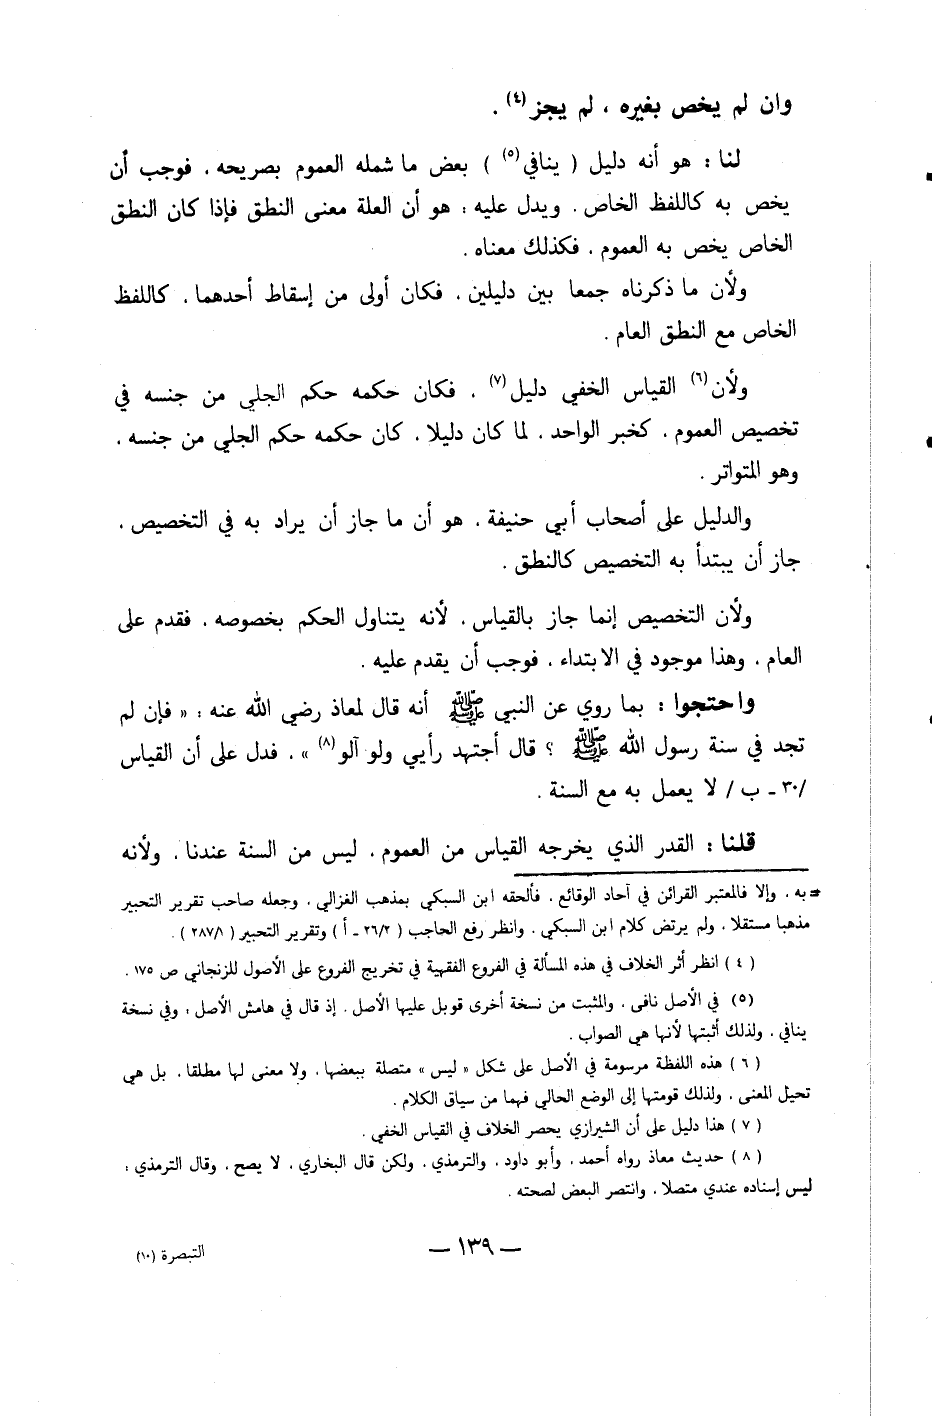 وان لم يخص بغيره ، لم يجز(٤) .
لنا : هو أنه دليل ( ينافي(٥) ) بعض ما شمله العموم بصريحه ، فوجب أن
يخص به كاللفظ الخاص . ويدل عليه : هو أن العلة معنى النطق فإذا كان النطق
الخاص يخص به العموم ، فكذلك معناه .
ولأن ما ذكرناه جمعا بين دليلين ، فكان أولى من إسقاط أحدهما ، كاللفظ
الخاص مع النطق العام .
ولأن(٦) القياس الخفي دليل(٧) ، فكان حكمه حكم الجلي من جنسه في
تخصيص العموم ، كخبر الواحد ، لما كان دليلا ، كان حكمه حكم الجلي من جنسه ،
وهو المتواتر .
والدليل على أصحاب أبي حنيفة ، هو أن ما جاز أن يراد به في التخصيص ،
جاز أن يبتدأ به التخصيص كالنطق .
ولأن التخصيص إنما جاز بالقياس ، لأنه يتناول الحكم بخصوصه ، فقدم على
العام ، وهذا موجود في الابتداء ، فوجب أن يقدم عليه .
واحتجوا : بما روي عن النبي ﷺ أنه قال لمعاذ رضي الله عنه : « فإن لم
تجد في سنة رسول الله ﷺ ؟ قال أجتهد رأيي ولو آلو(٨) » ، فدل على أن القياس
/٣٠ ـ ب/ لا يعمل به مع السنة .
قلنا : القدر الذي يخرجه القياس من العموم ، ليس من السنة عندنا ، ولأنه
= به ، وإلا فالمعتبر القرائن في آحاد الوقائع ، فألحقه ابن السبكي بمذهب الغزالي ، وجعله صاحب تقرير التحبير
مذهبا مستقلا ، ولم يرتض كلام ابن السبكي ، وانظر رفع الحاجب ( ٢٦/٢ ـ أ ) وتقرير التحبير ( ٢٨٧/١ ) .
( ٤ ) انظر أثر الخلاف في هذه المسألة في الفروع الفقهية في تخريج الفروع على الأصول للزنجاني ص ١٧٥ .
(٥) في الأصل نافى ، والمثبت من نسخة أخرى قوبل عليها الأصل ، إذ قال في هامش الأصل : وفي نسخة
ينافي ، ولذلك أثبتها لأنها هي الصواب .
( ٦ ) هذه اللفظة مرسومة في الأصل على شكل « ليس » متصلة ببعضها ، ولا معنى لها مطلقا ، بل هي
تحيل المعنى ، ولذلك قومتها إلى الوضع الحالي فهما من سياق الكلام .
( ٧ ) هذا دليل على أن الشيرازي يحصر الخلاف في القياس الخفي .
( ٨ ) حديث معاذ رواه أحمد ، وأبو داود ، والترمذي ، ولكن قال البخاري ، لا يصح ، وقال الترمذي :
ليس إسناده عندي متصلا ، وانتصر البعض لصحته .
— ١٣٩ —
التبصرة (١٠)